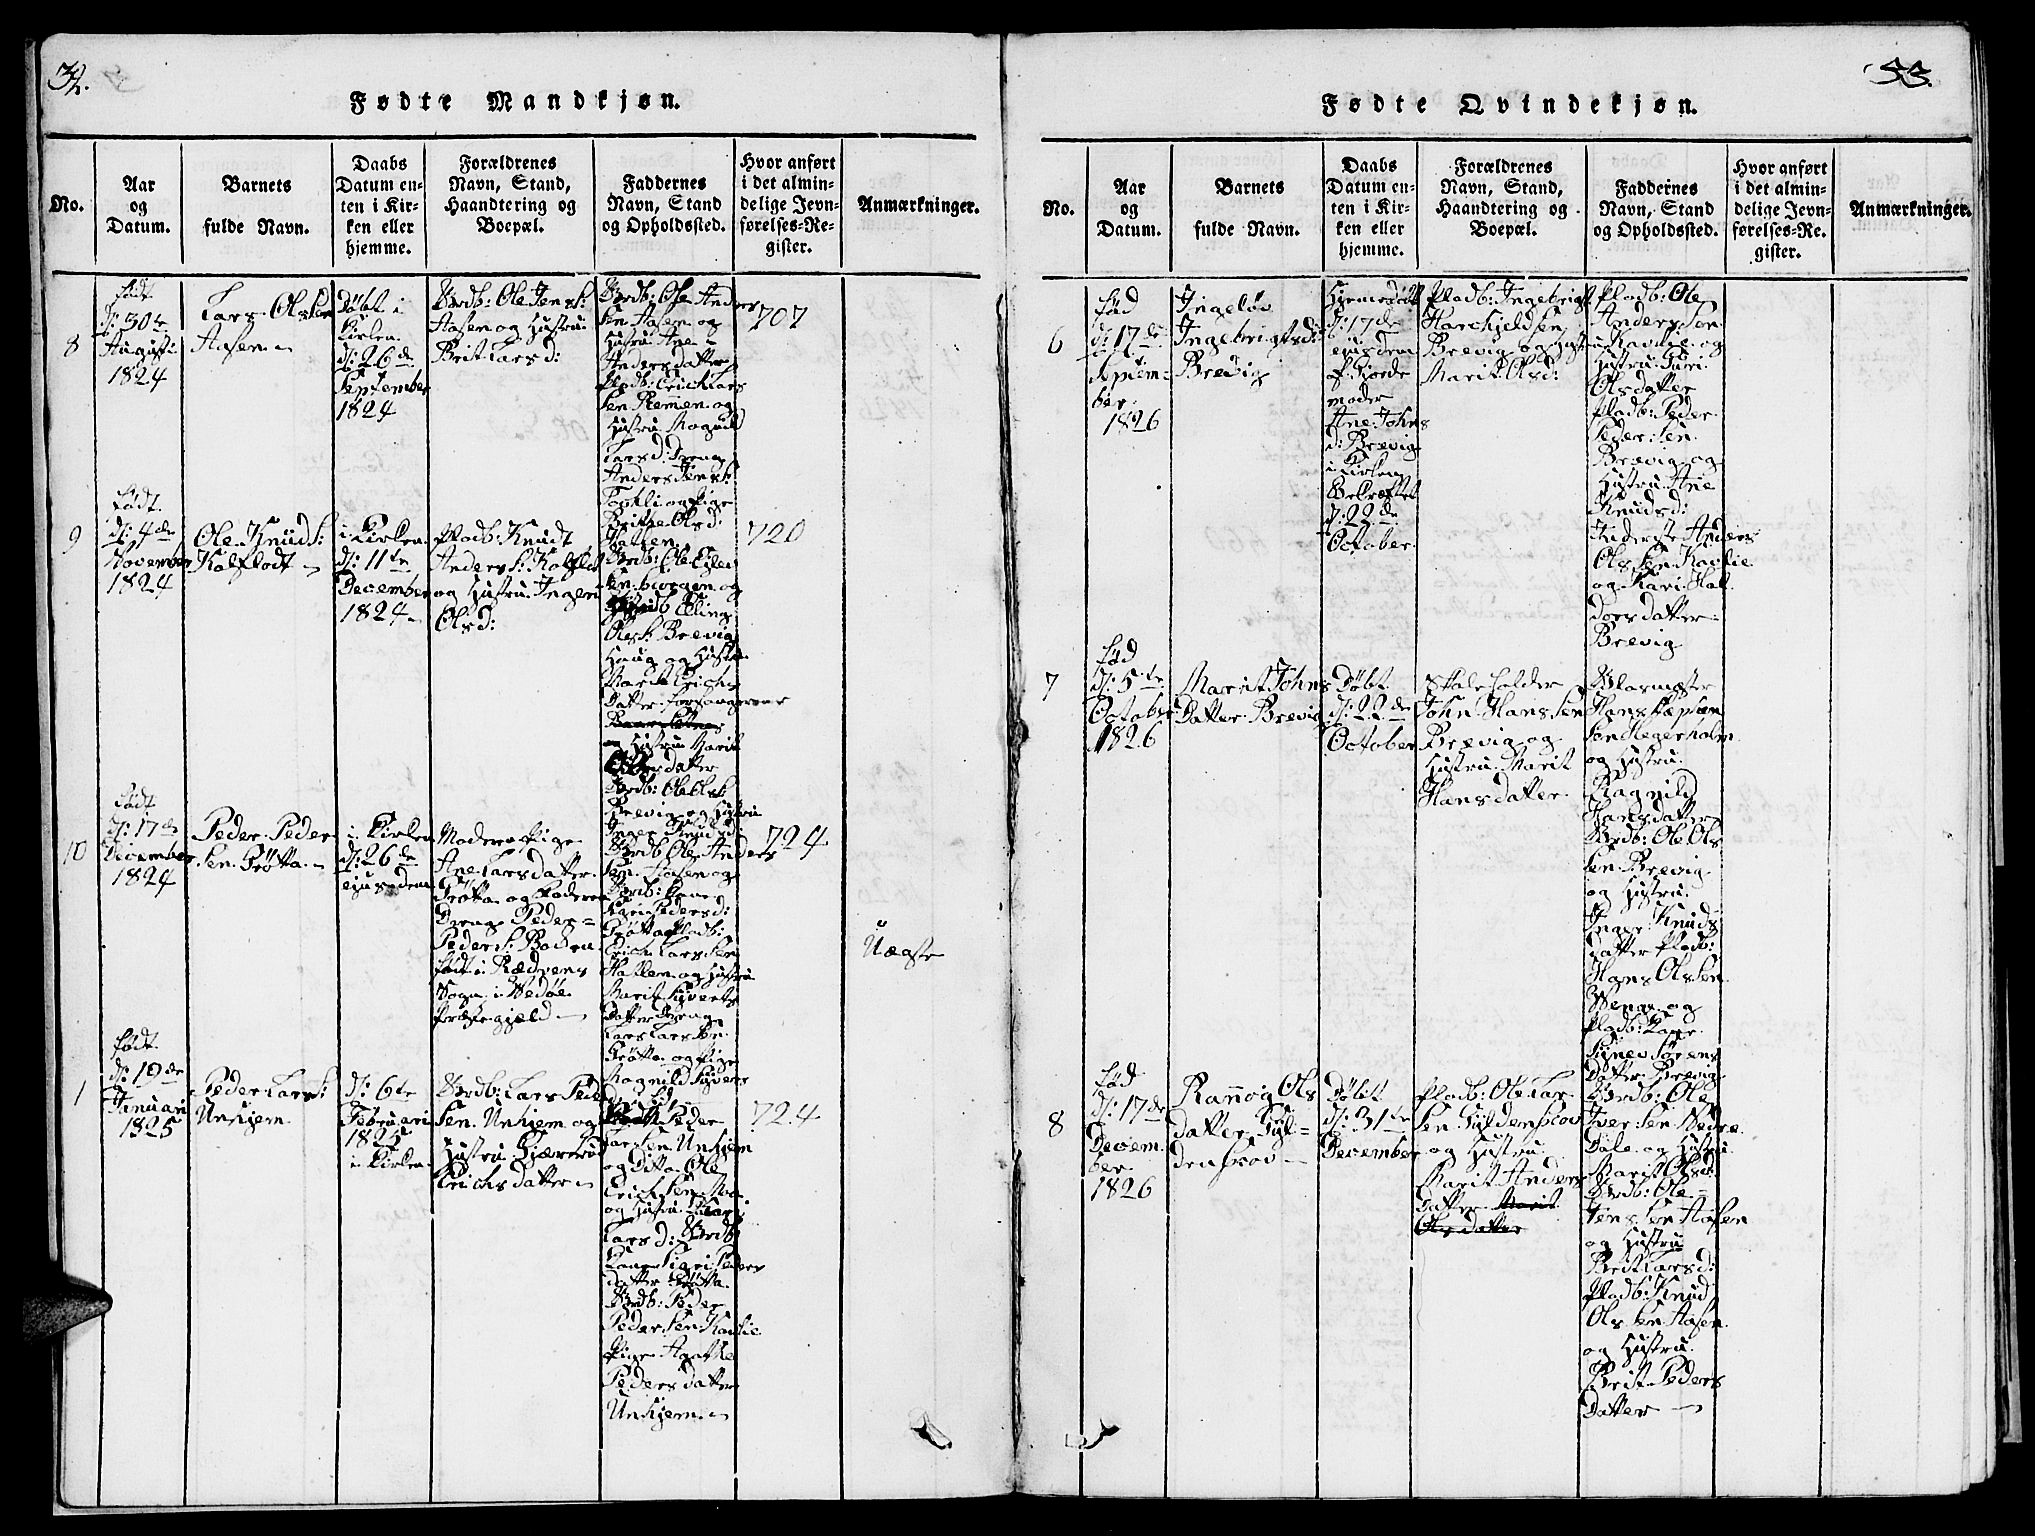 32.
Fødte Mandkjøn.
No.
Aar
og
Datum.
Barnets
fulde Navn.
Daabs
Datum en-
ten i Kir-
ken eller
hjemme.
Forældrenes
Navn, Stand,
Haandtering og
Boepæl.
Faddernes
Navn, Stand
og Opholdssted.
Hvor anført
i det almin-
delige Jevn-
førelses-Re-
gister.
Anmærkninger.
8
født
d: 30te
Augusti
1824
Lars Olssen
Aasen
Døbt i
Kirken
d: 26de
September
1824
Brdb: Ole Jens S:
Aasen og Hustru
Brit Lars d:
Brdb: Ole Anders
sen Aasen og
Hustru Ane
Anders datter
Pladb: Erich Lars
sen Remen og
Hustru Magnild
Lars d: Dreng
Anders Jens S:
og Pige
Britte Ols d:
Hatlen
707
9
født
d: 4de
November
1824
Ole Knud S:
Kalflodt
i Kirken
d: 11te
December
1824
Pladb: Knudt
Anders S: Kalflot
og Hustru Ingeri
Ols d:
Brdb: Ole
sen og
Elling
Ols S: Brevig
Haug og Hustru
Marit Erichs
Datter
og Hustru Marit
datter
Brdb: Ole Ols S:
Brevig og Hustru
Inger Knuds d:
720
10
født
d: 17de
December
1824
Peder Peder
sen Grøtta
i Kirken
d: 26de
ejusdem
Moder Pige
Ane Lars datter
Grøtta og Faderen
Dreng Peder
Peder S:
født i Rødvens
Sogn i Vedøe
Præstegjæld
Brdb: Ole Anders
sen Aasen og
Brdb: Kone
Kari Peders d:
Grøtta Pladb:
Erich Lars sen
Hatlen og Hustru
Marit Siverts
Datter Dreng
Lars Lars sen
Grøtta og Pige
Magnild Siverts
724
Uægte
1
født
d: 19de
Januari
1825
Peder Lars S:
Unhjem
d: 6te
Februari
1825
i Kirken
Brdb: Lars Peder
sen Unhjem og
Hustru
Erichs datter
Peder
Lars sen Unhjem
og Ditto Ole
Erich sen Moe
og Hustru
Lars d: Brdb:
Kone Sigri Peders
datter Grøtta
Brdb: Peder
Peder sen Kavlie
Pige Agathe
Peders datter
Unhjem
724
33.
Fødte Qvindekjøn.
No.
Aar
og
Datum.
Barnets
fulde Navn.
Daabs
Datum en-
ten i Kir-
ken eller
hjemme.
Forældrenes
Navn, Stand,
Haandtering og
Boepæl.
Faddernes
Navn, Stand
og Opholdssted.
Hvor anført
i det almin-
delige Jevn-
førelses-Re-
gister.
Anmærkninger.
6
fød
d: 17de
Septem=
ber
1826
Ingeløv
Ingebrigts d:
Brevig
Hjemedøbt
d: 17de
ejusdem
af Gjorde
moder
Ane Johns
d: Brevig
i Kirken
Bekræftet
d: 22de
October
Pladb: Ingebrigt
sen
Brevig og Hustru
Marit Ols d:
Pladb: Ole
Anders sen
Kavlie og
Hustru Guri
Olsdatter
Pladb: Peder
Peder sen
Brevig og
Hustru Ane
Knuds d:
Inderste Anders
Ols sen Kavlie
og Kari Hal
dors datter
Brevig
7
fød
d: 5te
October
1826
Marit Johns
Datter Brevig
Døbt
d: 22de
October
John Hans sen
Brevig og
Hustru Marit
Hans datter
Hans
og Hustru
Ragnild
Hans datter
Brdb: Ole Ols
sen Brevig
og Hustru
Inger Knuds
datter Pladb:
Hans Ols sen
Venge og
Pladb: Kone
Signe Sørens
Datter Brevig
8
fød
d: 17de
Decem
ber
1826
Rannøg Ols
datter Gyl=
denskov
Døbt
d: 31te
December
Pladb: Ole Lar
sen Gyldenskov
og Hustru
Marit Anders
Datter Marit
Ols datter
Brdb: Ole
Iver sen Nedre
Dale og Hustru
Marit Ols d:
Brdb: Ole
Jens sen Aasen
og Hustru
Brit Lars d:
Pladb: Knud
Ols sen Aasen
og Hustru
Brit Peders
Datter